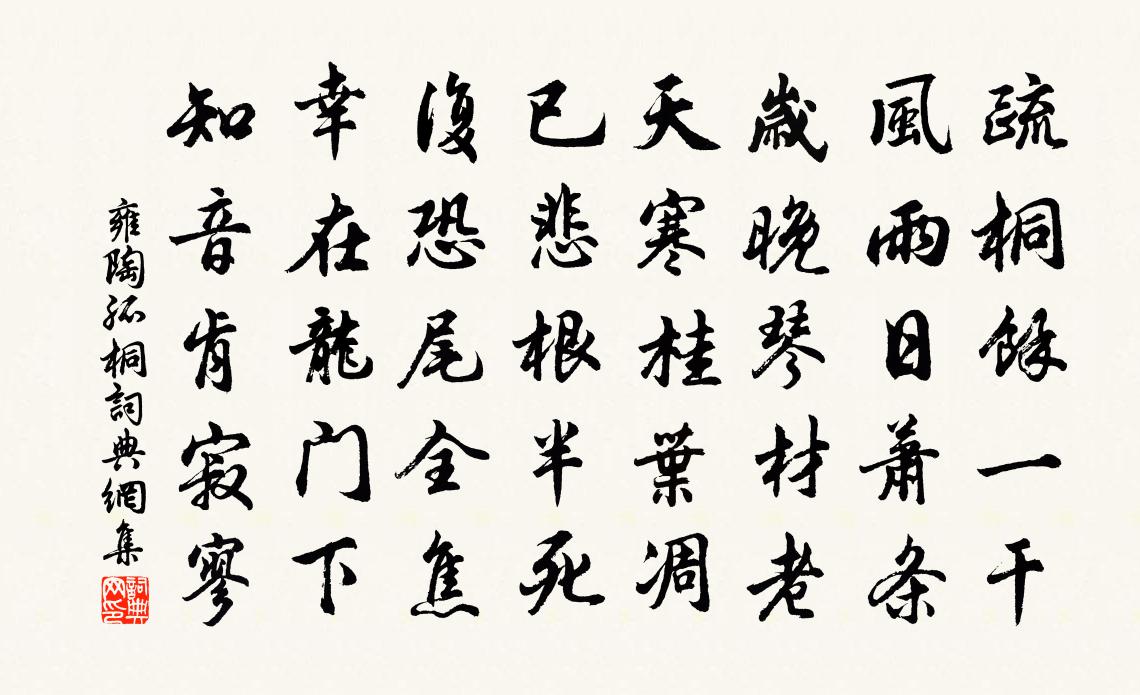 疏桐餘一干
風雨日蕭条
歲晚琴材老
天寒桂葉凋
已悲根半死
復恐尾全焦
幸在龍门下
知音肯寂寥
雍陶孤桐詞典網集
詞典网印